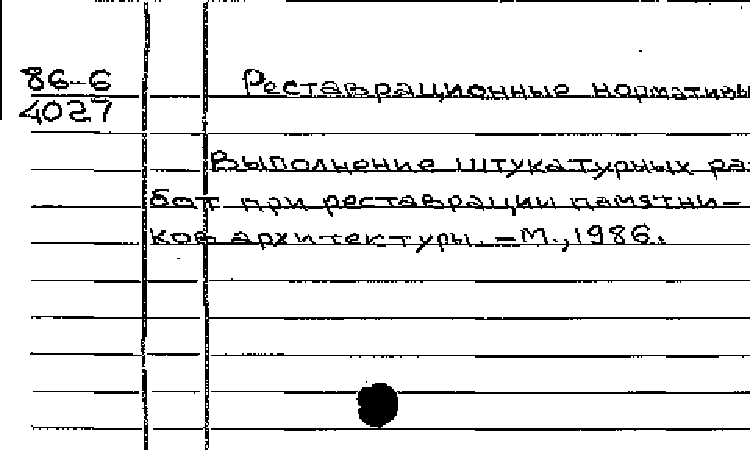 86-6
4027
Реставрационные нормативы
Выполнение штукатурных ра-
бот при реставрации памятни-
ков архитектуры. – М., 1986.